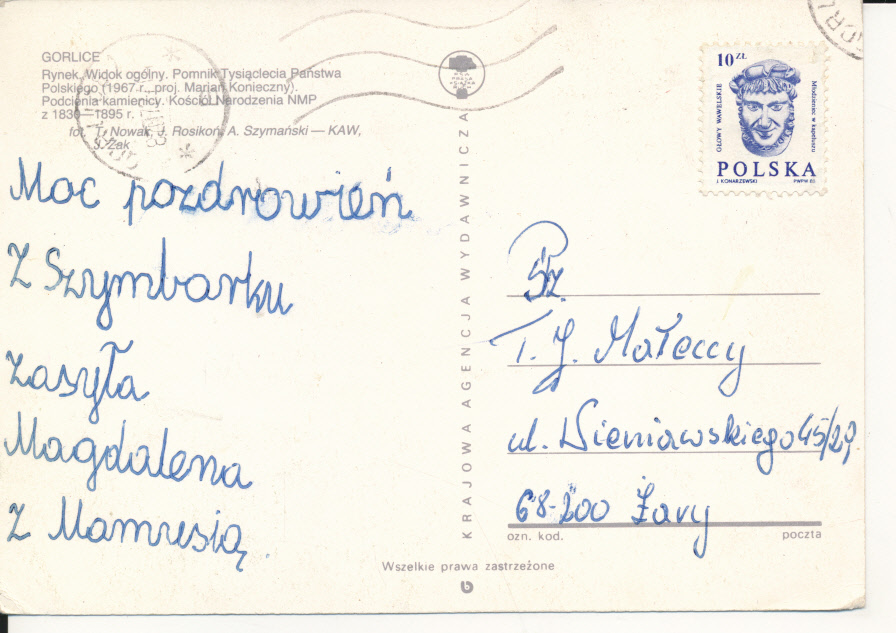 GORLICE
Rynek. Widok ogólny. Pomnik Tysiąclecia Państwa
Polskiego (1967 r., proj. Marian Konieczny).
Podcienia kamienicy. Kościół Narodzenia NMP
z 1830—1895 r.
fot. T. Nowak, J. Rosikoń, A. Szymański — KAW,
S. Żak
Moc pozdrowień
z Szymbarku
zasyła
Magdalena
z Mamusią.
KRAJOWA AGENCJA WYDAWNICZA
10 ZŁ
GŁOWY WAWELSKIE
Młodzieniec w kapeluszu
POLSKA
J. KONARZEWSKI
PWPW 85
Sz. P.
T. J. Małeccy
ul. Wieniawskiego 45/29
68-200 Żary
ozn. kod.
poczta
Wszelkie prawa zastrzeżone